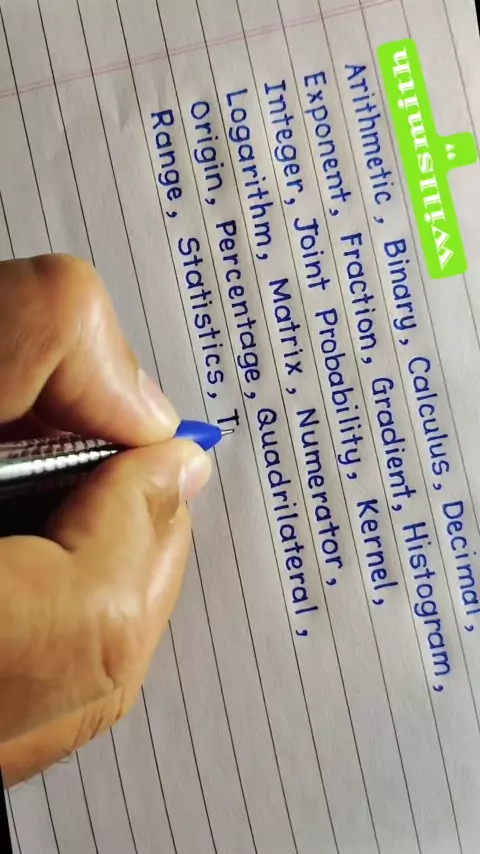 willsmith
Arithmetic, Binary, Calculus, Decimal,
Exponent, Fraction, Gradient, Histogram,
Integer, Joint Probability, Kernel,
Logarithm, Matrix, Numerator,
Origin, Percentage, Quadrilateral,
Range, Statistics, T